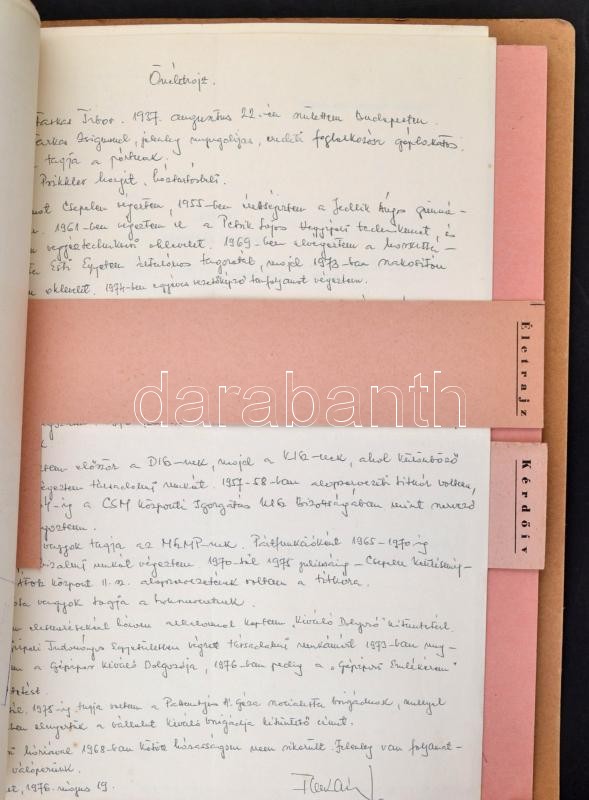 Önéletrajz.
Farkas Tibor. 1937. augusztus 22-én születtem Budapesten.
Farkas Zsigmond, jelenleg nyugdíjas, eredeti foglalkozása géplakatos.
tagja a pártnak.
Prikkler Margit, háztartásbeli.
Csepelen végeztem, 1955-ben érettségiztem a Jedlik Ányos gimná-
1961-ben végeztem el a Petrik Lajos Vegyipari technikumot, és
vegyésztechnikusi oklevelet. 1969-ben elvégeztem a Marxista-
Esti Egyetem általános tagozatát, majd 1973-ban szakosítón
oklevelet. 1974-ben egyéves vezetőképző tanfolyamot végeztem.
Életrajz
először a DISZ-nek, majd a KISZ-nek, ahol különböző
végeztem társadalmi munkát. 1957-58-ban alapszervezeti titkár voltam,
-ig a CSM Központi Igazgatás KISZ Bizottságában mint szervező
Kérdőív
vagyok tagja az MSZMP-nek. Pártfunkcióként 1965-1970-ig
munkát végeztem. 1970-től 1975 júliusáig - Csepeli
Központ II. sz. alapszervezetének voltam a titkára.
óta vagyok tagja a
elismeréseként három alkalommal kaptam "Kiváló Dolgozó" kitüntetést.
Tudományos Egyesületben végzett társadalmi munkámért 1973-ban meg-
a Gépipar Kiváló Dolgozója, 1976-ban pedig a "Gépipari Emlékérem"
1975-ig tagja voltam a Pattantyús Á. Géza szocialista brigádnak, mellyel
elnyertük a vállalat kiváló brigádja kitüntető címet.
1968-ban kötött házasságom nem sikerült. Jelenleg van folyamat-
válóperünk.
1976. május 19.
darabanth